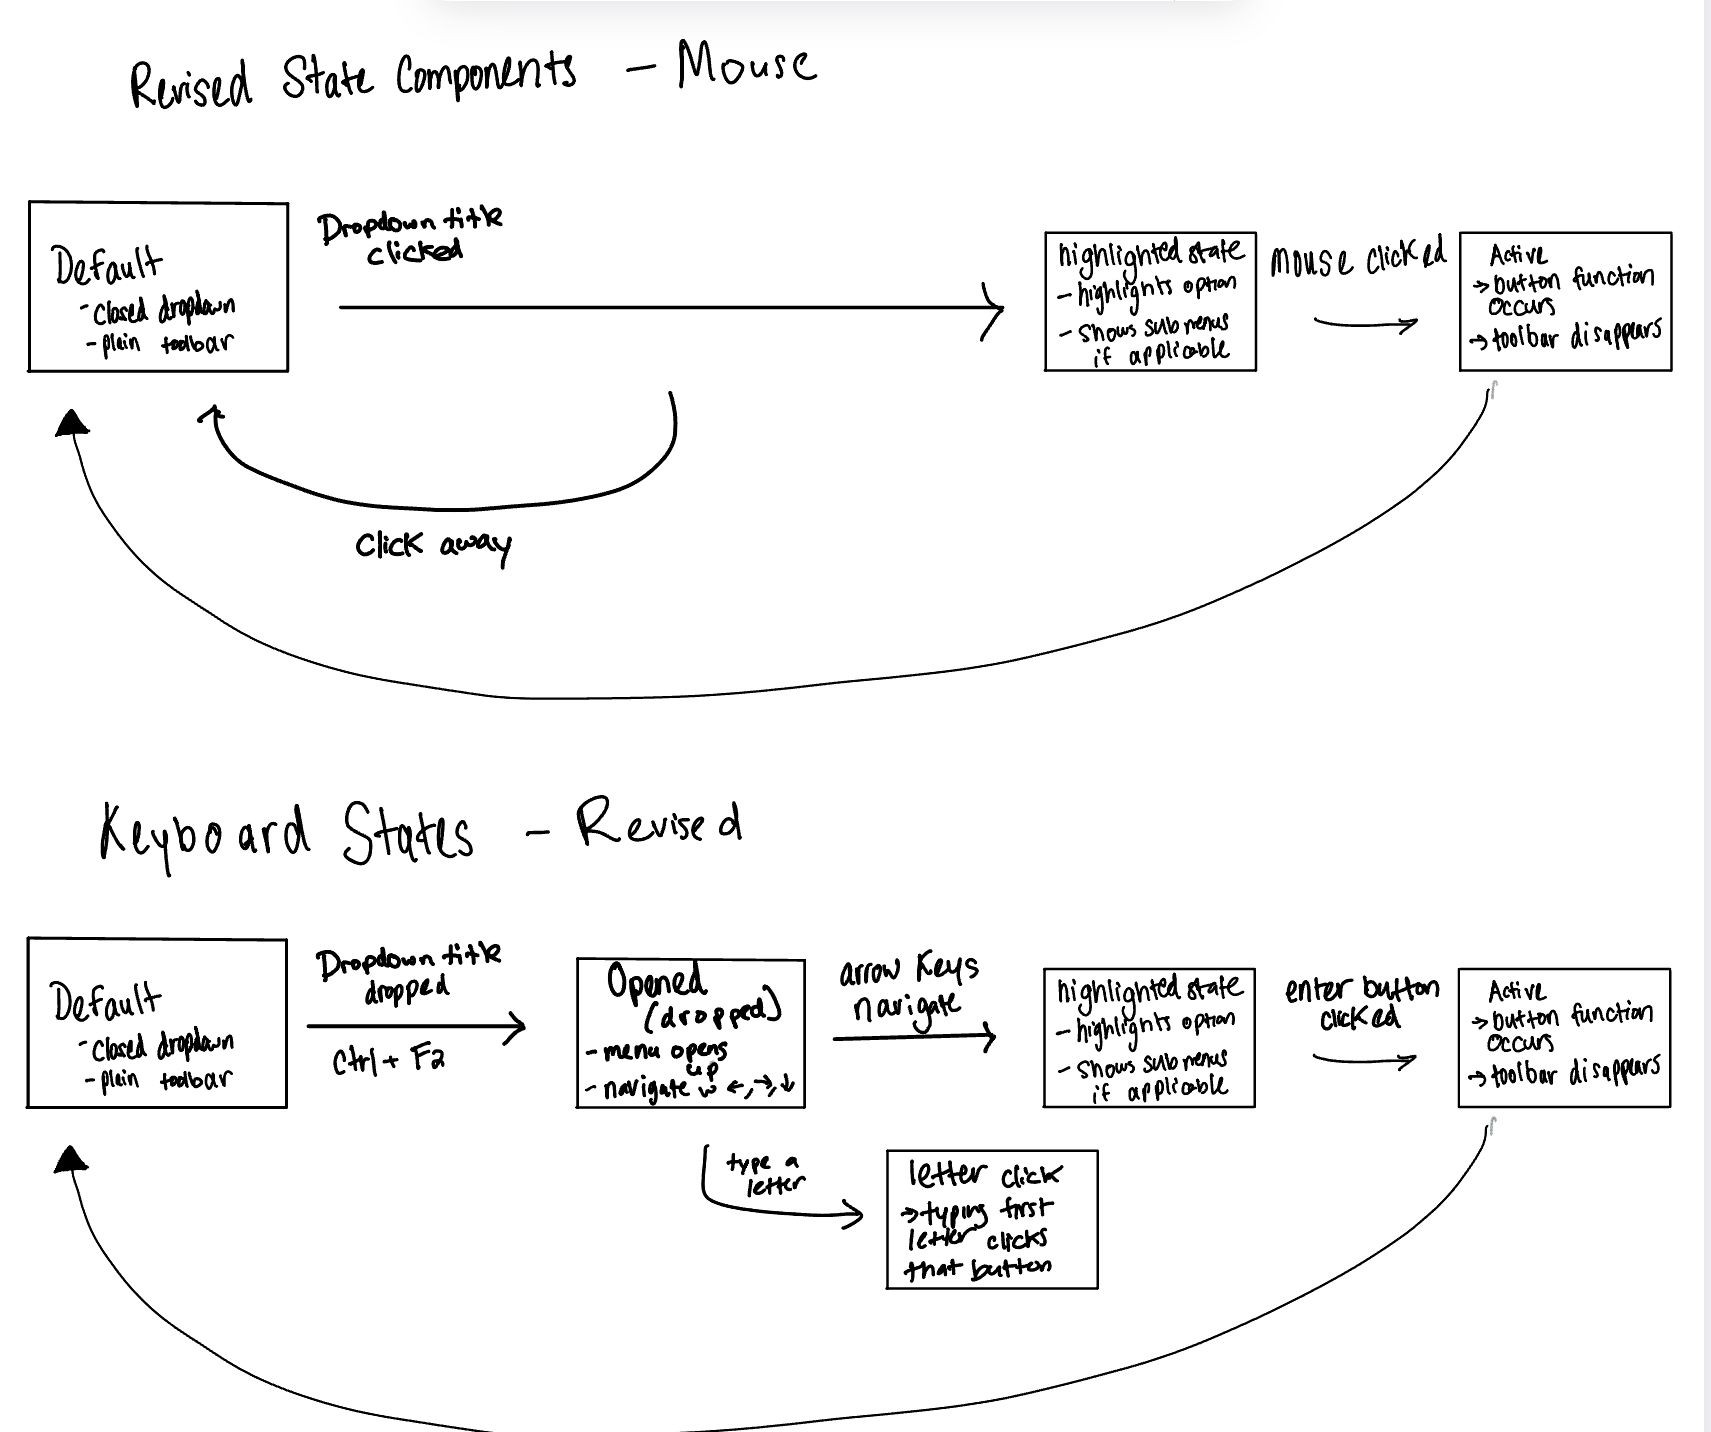 Revised State Components - Mouse
Default
- Closed dropdown
- plain toolbar
Dropdown title
clicked
highlighted state
- highlights option
- Shows sub menus
if applicable
mouse clicked
Active
→ button function
occurs
→ toolbar disappears
Click away
Keyboard States - Revised
Default
- Closed dropdown
- plain toolbar
Dropdown title
dropped
Ctrl + F2
Opened
(dropped)
- menu opens
up
- navigate w ←,→,↓
arrow Keys
navigate
highlighted state
- highlights option
- Shows sub menus
if applicable
enter button
clicked
Active
→ button function
occurs
→ toolbar disappears
type a
letter
letter click
→ typing first
letter clicks
that button